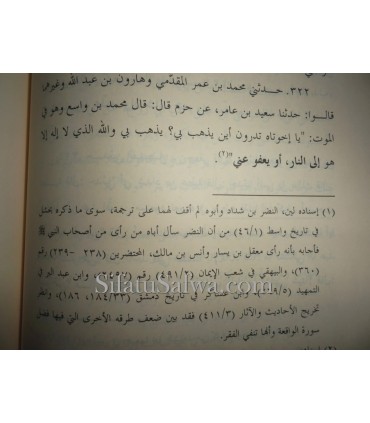 ٣٢٢. حدثني محمد بن عمر المقدّمي وهارون بن عبد الله وغيرهما
قالوا: حدثنا سعيد بن عامر، عن حزم قال: قال محمد بن واسع وهو في
الموت: "يا إخوتاه تدرون أين يذهب بي؟ يذهب بي والله الذي لا إله إلا
هو إلى النار، أو يعفو عني"(٢).
(١) إسناده لين، النضر بن شداد وأبوه لم أقف لهما على ترجمة، سوى ما ذكره بحشل
في تاريخ واسط (٤٦/١) من أن النضر سأل أباه من رأى من أصحاب النبي ﷺ
فأجابه بأنه رأى معقل بن يسار وأنس بن مالك، المحتضرين (٢٣٨ -٢٣٩) رقم
(٣٦٠)، والبيهقي في شعب الإيمان (٤٩١/٢) رقم، وابن عبد البر في
التمهيد، وابن عساكر في تاريخ دمشق (١٨٤/٣٣، ١٨٦)، وانظر
تخريج الأحاديث والآثار (٤١١/٣) فقد بين ضعف طرقه الأخرى التي فيها فضل
سورة الواقعة وأنها تنفي الفقر.
SilatuSalwa.com